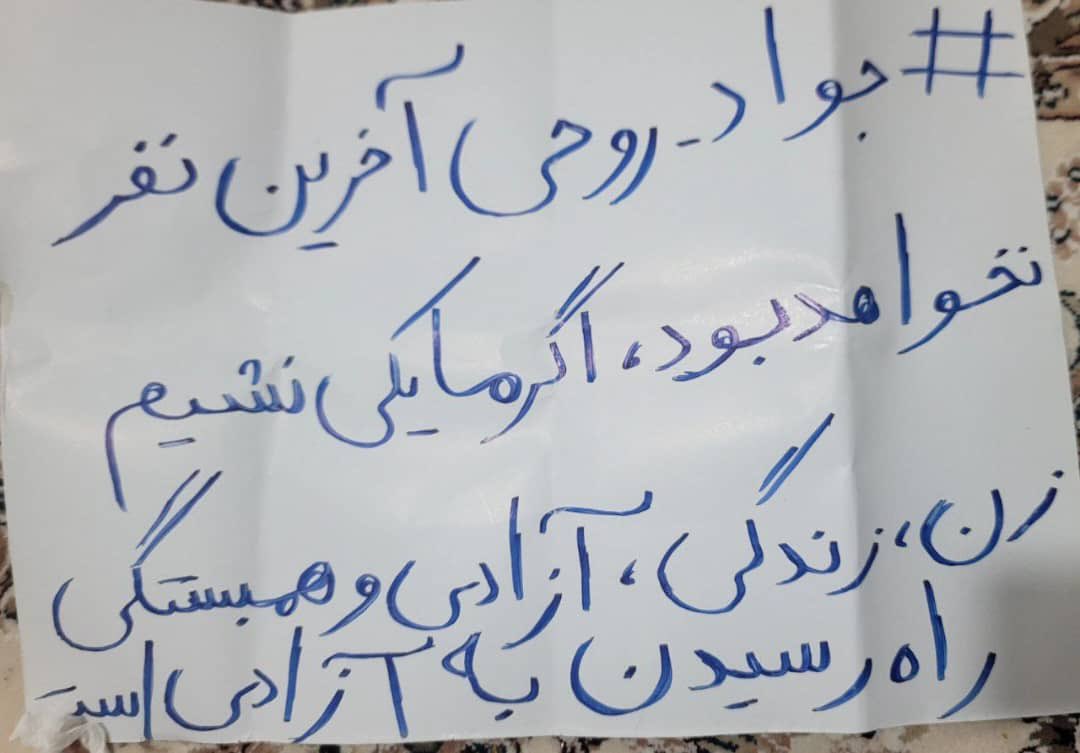 #جواد_روحی آخرین نفر
نخواهد بود، اگر ما یکی نشیم
زن، زندگی، آزادی و همبستگی
راه رسیدن به آزادی است